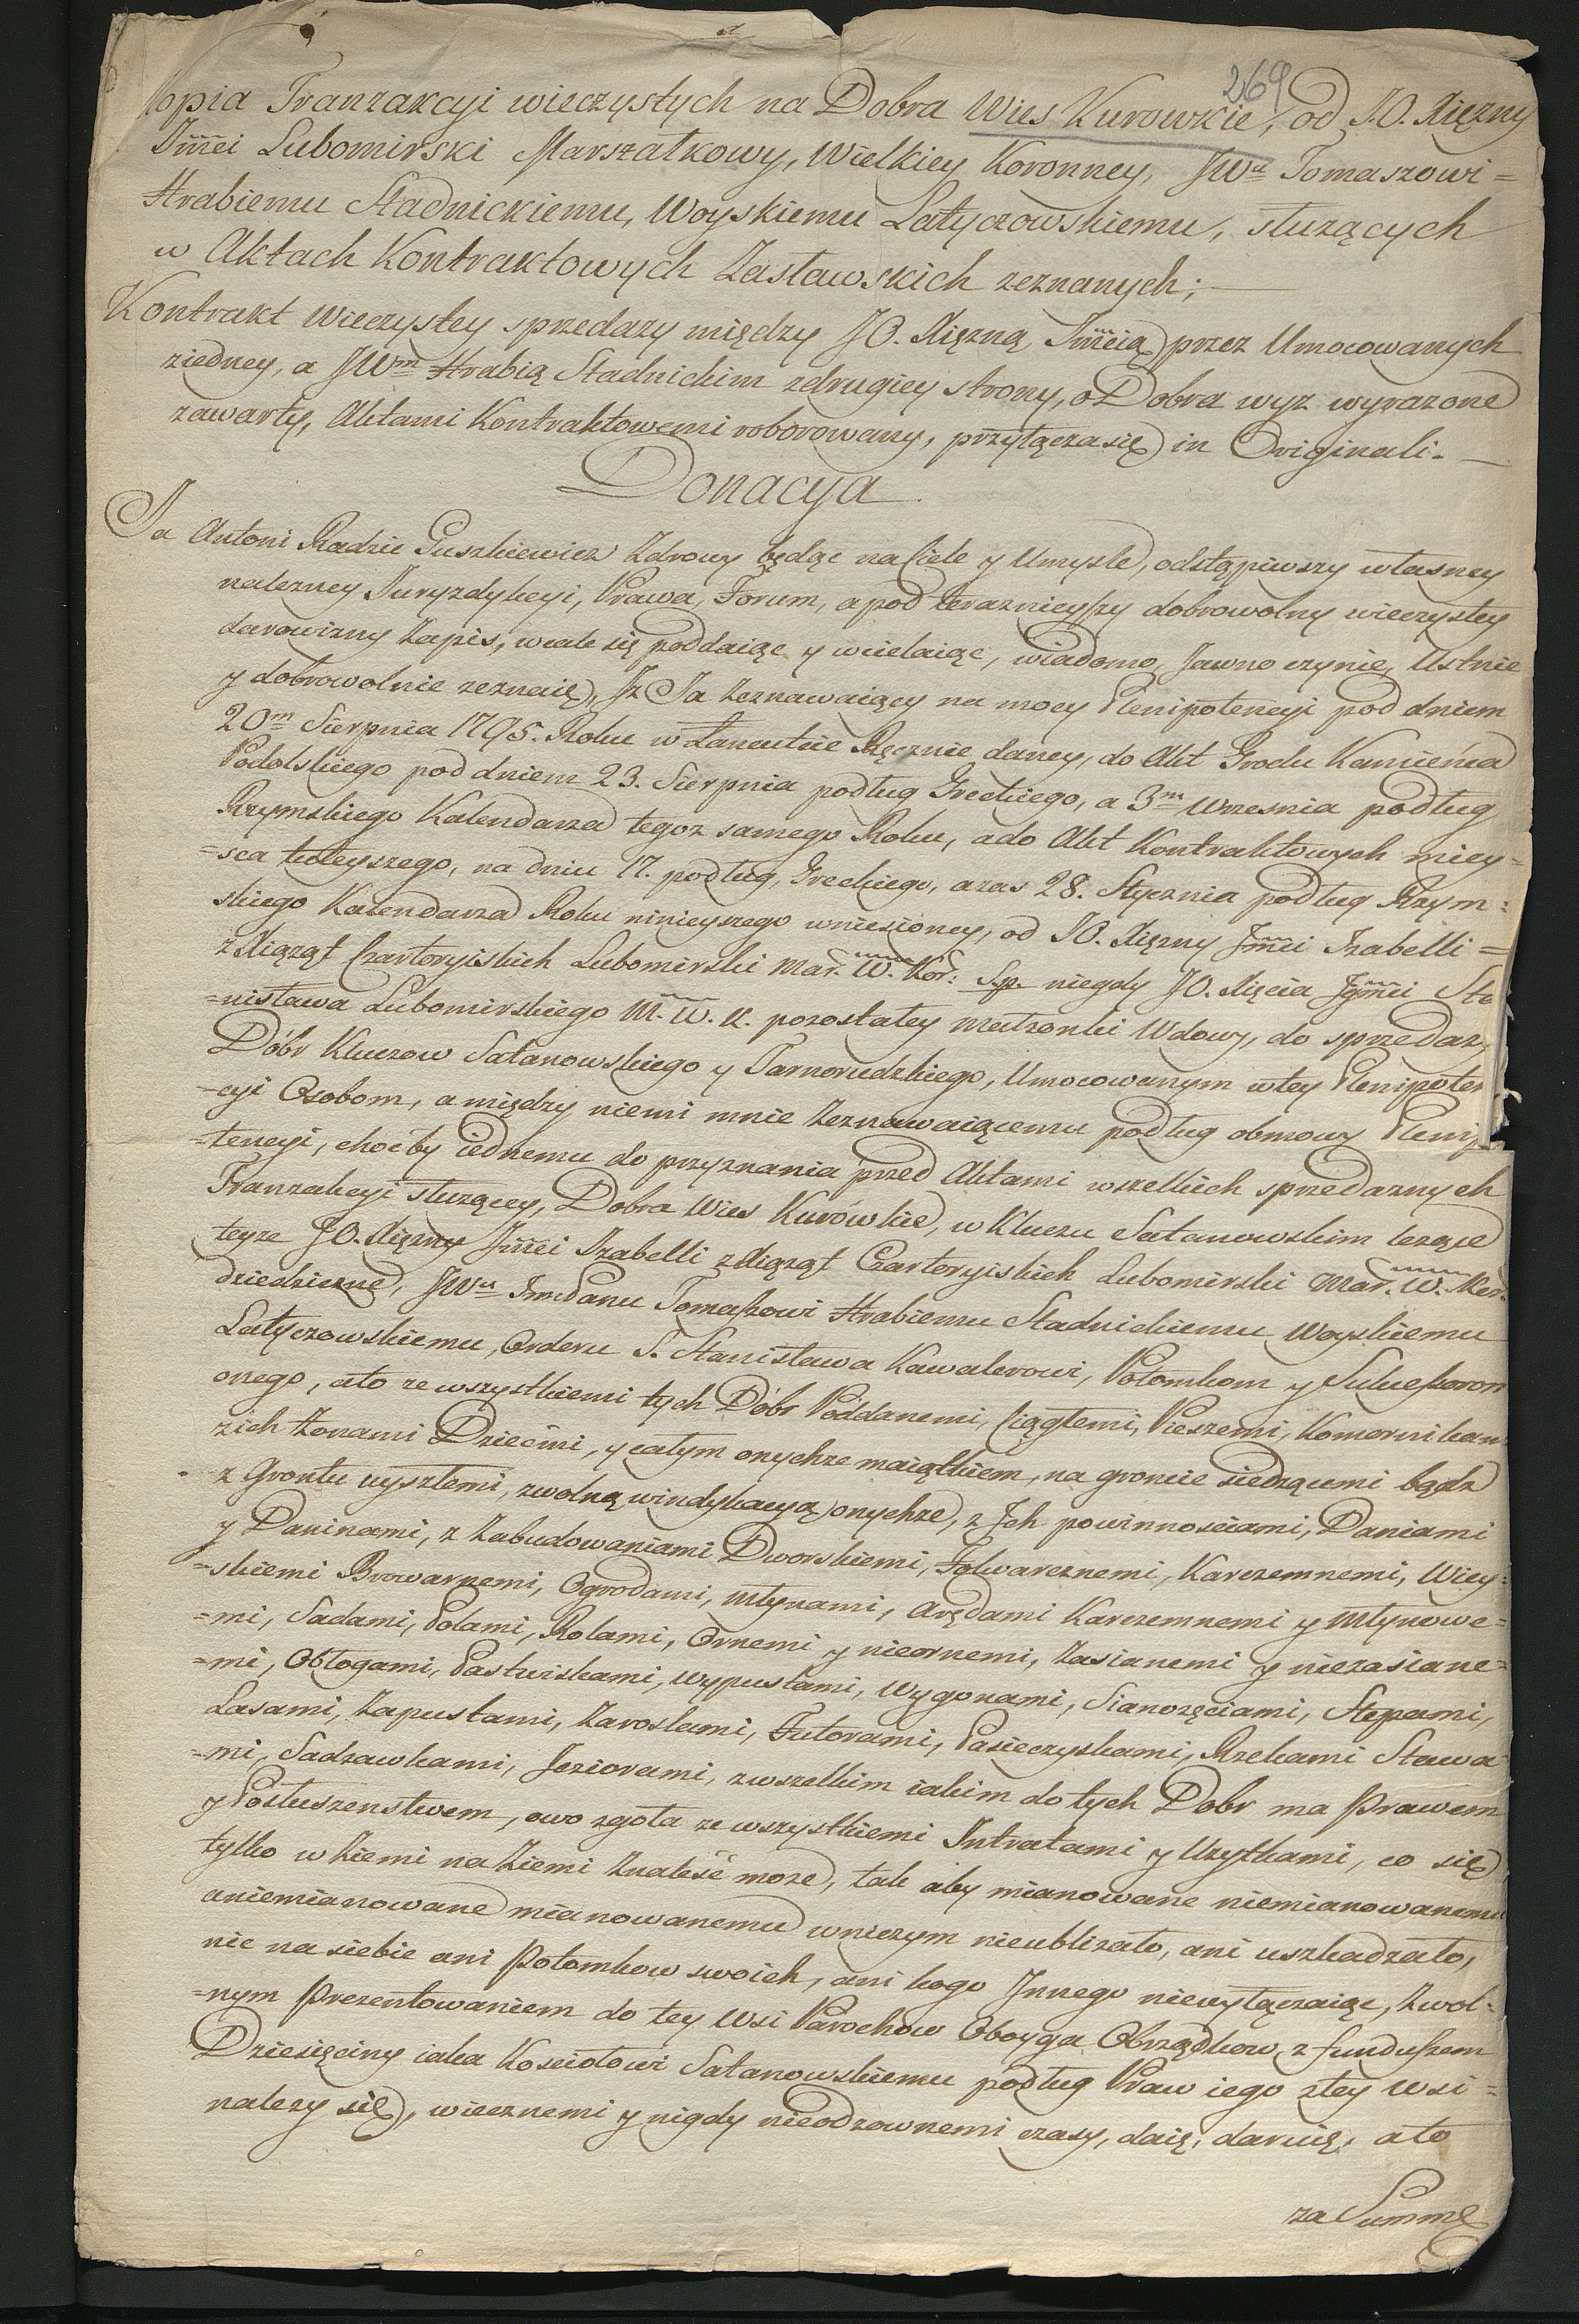 269
Kopia Tranzakcyi wieczystych na Dobra Wies Kurowkie, od J.O. Xięzny
Jmci Lubomirski Marszałkowy, Wielkiey Koronney, JWu Tomaszowi =
Hrabiemu Stadnickiemu, Woyskiemu Latyczowskiemu, służących
w Aktach Kontraktowych Zasławskich zeznanych; —
Kontrakt Wieczystey sprzedazy między JO. Xięzną Jmcią przez Umocowanych
ziedney, a JWm Hrabią Stadnickim zdrugiey strony, o Dobra wyz wyrazone
zawarty, Aktami Kontraktowemi roborowany, przyłącza się in Originali. —
Donacya
Ja Antoni Radzic Guszkiewicz Zdrowy będąc na Ciele y Umysle, odstąpiwszy własney
nalezney Juryzdykcyi, Prawa, Forum, a pod terazniejszy dobrowolny wieczystey
darowizny Zapis, wcale się poddaiąc y wcielaiąc, wiadomo, Jawno czynie, Ustnie
y dobrowolnie zeznaię, Jz Ja Zeznawaiący na mocy Plenipotencyi pod dniem
20m Sierpnia 1795. Roku w Łancutcie Ręcznie daney, do Akt Grodu Kamieńca
Podolskiego pod dniem 23. Sierpnia podług Greckiego, a 3m Wrzesnia podług
Rzymskiego Kalendarza tegoz samego Roku, a do Akt Kontraktowych miey=
=sca tuteyszego, na dniu 17. podług, Greckiego, a zas 28. Stycznia podług Rzym=
skiego Kalendarza Roku ninieyszego wniesioney, od JO. Xięzny Jmci Izabelli =
z Xiąząt Czartoryiskich Lubomirski Mar. W. Kor: S.p. niegdy JO. Xięcia Jgmci Sta
=nisława Lubomirskiego M. W. K. pozostałey małzonki Wdowy, do sprzedazy
Dóbr Kluczow Satanowskiego y Tarnorudzkiego, Umocowanym w tey Plenipoten
=cyi Osobom, a między niemi mnie Zeznawaiącemu podług obmowy Plenip
=tencyi, choćby iednemu do przyznania przed Aktami wszelkich sprzedaznych
Tranzakcyi słuzącey, Dobra Wies Kurówkie, w Kluczu Satanowskim lezące
teyze JO. Xięzny Jmci Izabelli z Xiąząt Czartoryiskich Lubomirski Mar. W. Kor.
dziedziczne, JWu Jmć Panu Tomaszowi Hrabiemu Stadnickiemu Woyskiemu
Latyczowskiemu, Orderu S. Stanisława Kawalerowi, Potomkom y Sukcessorom
onego, a to ze wszystkiemi tych Dóbr Poddanemi, Ciągłemi, Pieszemi, Komornikam
zich Zonami Dziećmi, y całym onychze maiątkiem, na groncie siedzącemi bądz
z Grontu uyszłemi, zwolną windykacyą onychze, z Jch powinnosciami, Daniami
y Daninami, z Zabudowaniami Dworskiemi, Folwarcznemi, Karczemnemi, Wiey=
=skiemi Browarnemi, Ogrodami, Młynami, Arędami Karczemnemi y Młynowe=
=mi, Sadami, Polami, Rolami, Ornemi y nieornemi, Zasianemi y niezasiane=
=mi, Obłogami, Pastwiskami, wypustami, Wygonami, Sianozęciami, Stepami,
Lasami, Zapustami, Zaroslami, Futorami, Pasieczyskami, Rzekami Stawa
=mi, Sadzawkami, Jeziorami, z wszelkim iakim do tych Dobr ma Prawem
y Posłuszenstwem, owo zgoła ze wszystkiemi Intratami y Uzytkami, co się
tylko w Ziemi na Ziemi Znalesć moze, tak aby mianowane niemianowanemu
aniemianowane mianowanemu wniczym nieublizało, ani uszkadzało,
nic na siebie ani Potomkow swoich, ani kogo Jnnego niewyłączaiąc, Zwol=
=nym Prezentowaniem do tey Wsi Parochow Oboyga Obrządkow, z funduszem
Dziesięciny iaka Kosciołowi Satanowskiemu podług Praw iego ztey Wsi =
nalezy się, wiecznemi y nigdy nieodzownemi czasy, daię, daruię, a to
za Summę